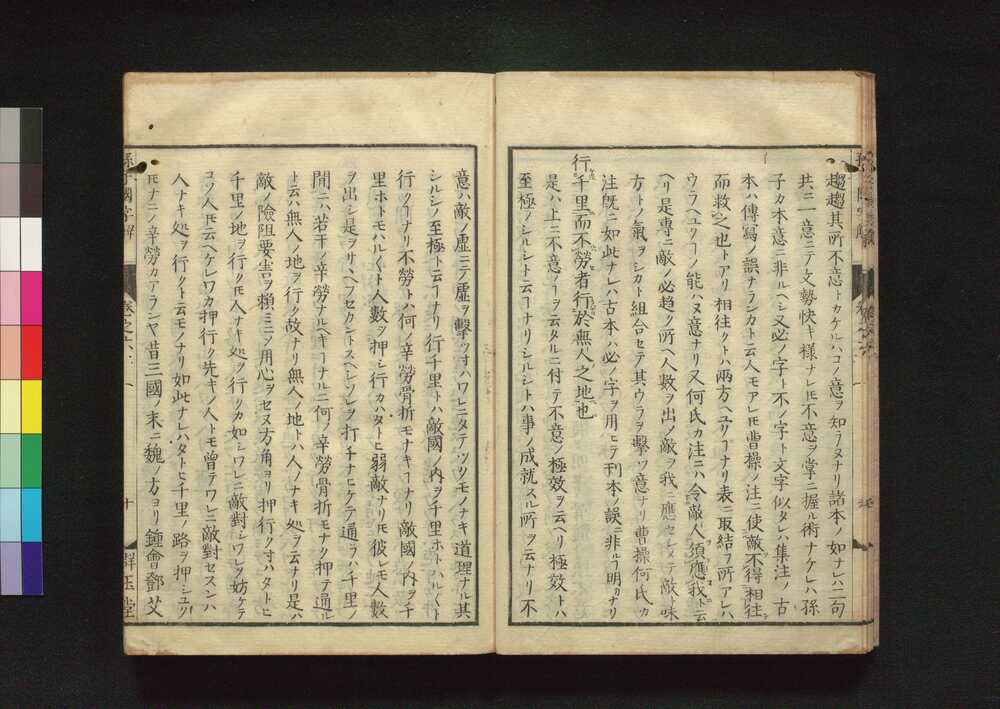 趨趨其所不意トカケルハコノ意ヲ知ラヌナリ諸本ノ如ナレハ二句
共ニ一意ニテ文勢快キ様ナレ𪜈不意ヲ掌ニ握ル術ナケレハ孫
子カ本意ニ非ルヘシ又必ノ字ト不ノ字ト文字似タレハ集注ノ古
本ハ傳寫ノ誤ナランカト云人モアレ𪜈曹操ノ注ニ使敵不得相往
而救之也トアリ相往クトハ兩方ヘユクヿナリ表ニ取結フ所アレハ
ウラヘユクヿノ能ハヌ意ナリ又何氏カ注ニハ令敵人須應我ト云
ヘリ是專ニ敵ノ必趨クノ所ヘ人數ヲ出ノ敵ヲ我ニ應セシメテ敵味
方トノ氣ヲシカト組合セテ其ウラヲ擊ツ意ナリ曹操何氏カ
注旣ニ如此ナレハ古本ハ必ノ字ヲ用ヒテ刊本ノ誤ニ非ルヿ明カナリ
行千里而不勞者行於無人之地也
是ハ上ニ不意ノヿヲ云タルニ付テ不意ノ極效ヲ云ヘリ極效トハ
至極ノシルシト云ヿナリシルシトハ事ノ成就スル所ヲ云ナリ不
意ハ敵ノ虛ニテ虛ヲ擊ツ寸ハワレニタテツクモノナキ道理ナル其
シルシノ至極ト云ヿナリ行千里トハ敵國ノ内ヲ千里ホトハルくト
行クヿナリ不勞トハ何ノ辛勞骨折モナキヿナリ敵國ノ内ヲ千
里ホトモハルくト人數ヲ押シ行カハタトヒ弱敵ナリ𪜈彼レモ人數
ヲ出シ是ヲサヽヘフセカントスヘシソレヲ打チナヒケテ通ラハ千里ノ
間ニハ若干ノ辛勞ナルヘキヿナルニ何ノ辛勞骨折モナク押テ通ル
ト云ハ無人ノ地ヲ行ク故ナリ無人ノ地トハ人ノナキ処ヲ云ナリ是ハ
敵ノ險阻要害ヲ賴ミニノ用心ヲセヌ方角ヨリ押行ク寸ハタトヒ
千里ノ地ヲ行ク𪜈人ナキ処ヲ行クカ如シワレニ敵對シワレヲ妨ケテ
ユクノ人𪜈云ヘケレワカ押行ク先キノ人トモ曾テワレニ敵對セスンハ
人ナキ処ヲ行クト云モノナリ如此ナレハタトヒ千里ノ路ヲ押シユク
𪜈ナニノ辛勞カアランヤ昔三國ノ末ニ魏ノ方ヨリ鍾會鄧艾
孫子國字解
卷之六
十
群玉堂